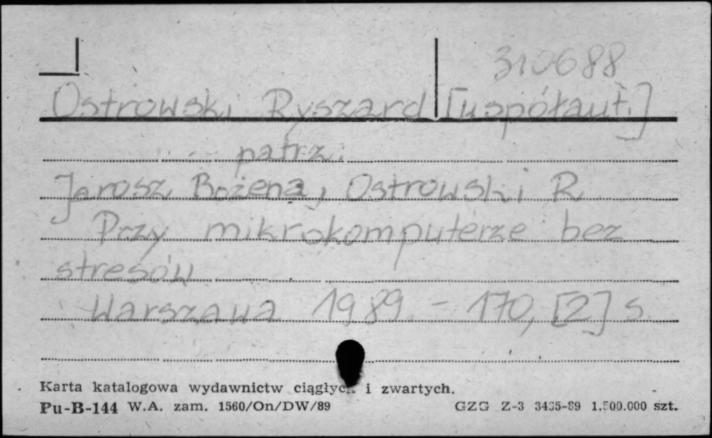 310688
Ostrowski Ryszard [współaut.]
patrz:
Jarosz Bożena, Ostrowski R
Przy mikrokomputerze bez
stresów
Warszawa 1989. - 170, [2] s
Karta katalogowa wydawnictw ciągłych i zwartych.
Pu-B-144 W.A. zam. 1560/On/DW/89 GZG Z-3 3435-89 1.500.000 szt.